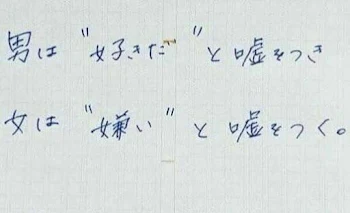 男は "好きだ" と嘘をつき
女は "嫌い" と嘘をつく。